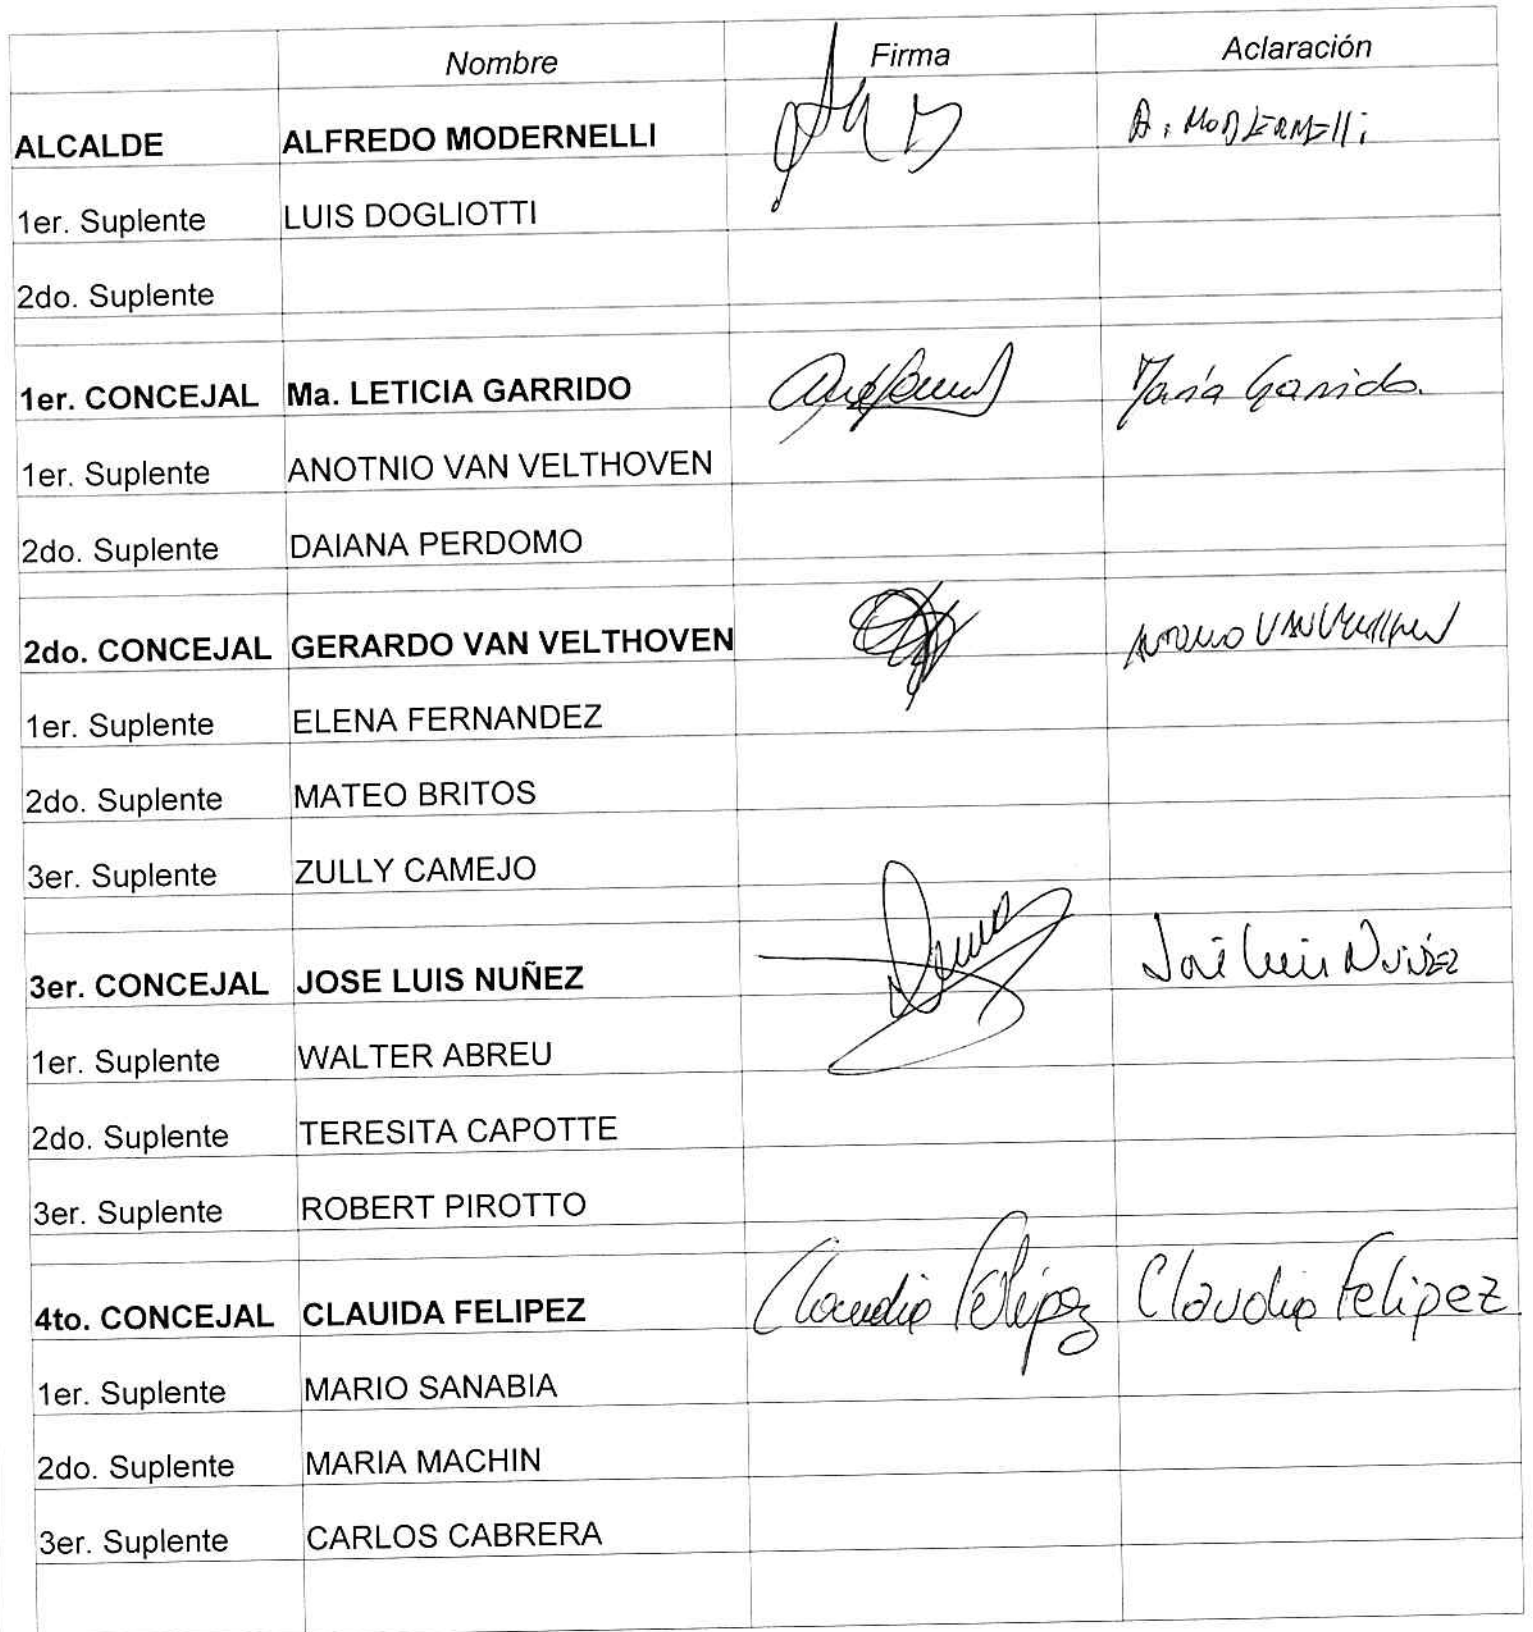 Nombre Firma Aclaración
ALCALDE ALFREDO MODERNELLI A. MODERNElli
1er. Suplente LUIS DOGLIOTTI
2do. Suplente
1er. CONCEJAL Ma. LETICIA GARRIDO María Garrido.
1er. Suplente ANOTNIO VAN VELTHOVEN
2do. Suplente DAIANA PERDOMO
2do. CONCEJAL GERARDO VAN VELTHOVEN ANTONIO VAN VELTHOVEN
1er. Suplente ELENA FERNANDEZ
2do. Suplente MATEO BRITOS
3er. Suplente ZULLY CAMEJO
3er. CONCEJAL JOSE LUIS NUÑEZ José Luis Nuñez
1er. Suplente WALTER ABREU
2do. Suplente TERESITA CAPOTTE
3er. Suplente ROBERT PIROTTO
4to. CONCEJAL CLAUIDA FELIPEZ Claudia Felipez Claudia Felipez
1er. Suplente MARIO SANABIA
2do. Suplente MARIA MACHIN
3er. Suplente CARLOS CABRERA